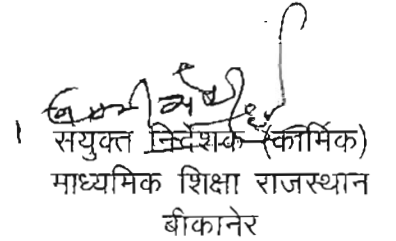 संयुक्त निर्देशक (कार्मिक)
माध्यमिक शिक्षा राजस्थान
बीकानेर